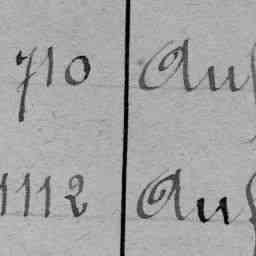 710 Auf
1112 Auf